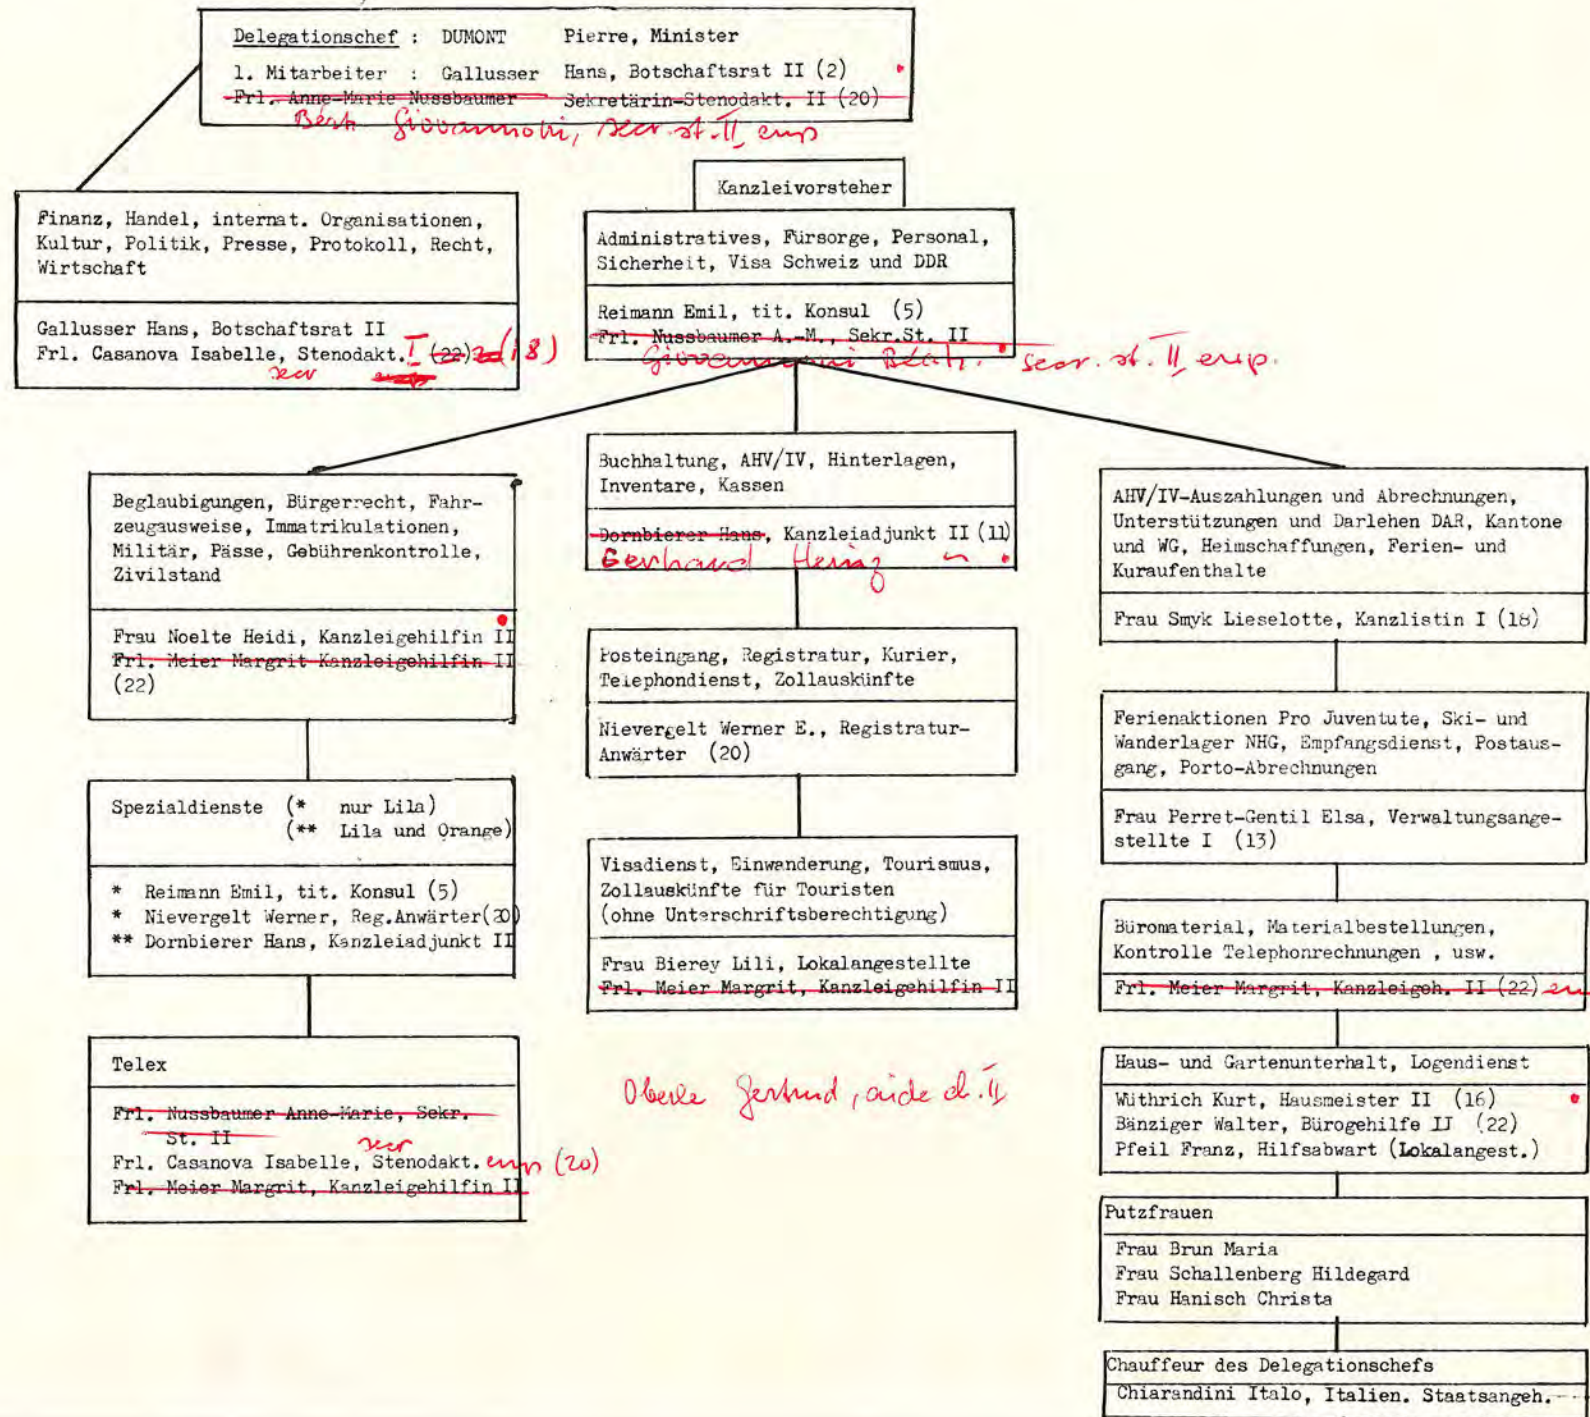 Delegationschef : DUMONT Pierre, Minister
1. Mitarbeiter : Gallusser Hans, Botschaftsrat II (2)
Frl. Anne-Marie Nussbaumer Sekretärin-Stenodakt. II (20)
Béat. Giovannoni, secr. st. II emp
Finanz, Handel, internat. Organisationen,
Kultur, Politik, Presse, Protokoll, Recht,
Wirtschaft
Gallusser Hans, Botschaftsrat II
Frl. Casanova Isabelle, Stenodakt. I (22) (18)
secr
Kanzleivorsteher
Administratives, Fürsorge, Personal,
Sicherheit, Visa Schweiz und DDR
Reimann Emil, tit. Konsul (5)
Frl. Nussbaumer A.-M., Sekr.St. II
Giovannoni Béatr. secr. st. II emp.
Beglaubigungen, Bürgerrecht, Fahr-
zeugausweise, Immatrikulationen,
Militär, Pässe, Gebührenkontrolle,
Zivilstand
Frau Noelte Heidi, Kanzleigehilfin II
Frl. Meier Margrit Kanzleigehilfin II
(22)
Spezialdienste (* nur Lila)
(** Lila und Orange)
* Reimann Emil, tit. Konsul (5)
* Nievergelt Werner, Reg.Anwärter(20)
** Dornbierer Hans, Kanzleiadjunkt II
Telex
Frl. Nussbaumer Anne-Marie, Sekr.
St. II
secr
Frl. Casanova Isabelle, Stenodakt. emp (20)
Frl. Meier Margrit, Kanzleigehilfin II
Buchhaltung, AHV/IV, Hinterlagen,
Inventare, Kassen
Dornbierer Hans, Kanzleiadjunkt II (11)
Gerhard Heinz "
Posteingang, Registratur, Kurier,
Telephondienst, Zollauskünfte
Nievergelt Werner E., Registratur-
Anwärter (20)
Visadienst, Einwanderung, Tourismus,
Zollauskünfte für Touristen
(ohne Unterschriftsberechtigung)
Frau Bierey Lili, Lokalangestellte
Frl. Meier Margrit, Kanzleigehilfin II
Oberle Gertrud, aide ch. II
AHV/IV-Auszahlungen und Abrechnungen,
Unterstützungen und Darlehen DAR, Kantone
und WG, Heimschaffungen, Ferien- und
Kuraufenthalte
Frau Smyk Lieselotte, Kanzlistin I (18)
Ferienaktionen Pro Juventute, Ski- und
Wanderlager NHG, Empfangsdienst, Postaus-
gang, Porto-Abrechnungen
Frau Perret-Gentil Elsa, Verwaltungsange-
stellte I (13)
Büromaterial, Materialbestellungen,
Kontrolle Telephonrechnungen , usw.
Frl. Meier Margrit, Kanzleigeh. II (22)
Haus- und Gartenunterhalt, Logendienst
Wüthrich Kurt, Hausmeister II (16)
Bänziger Walter, Bürogehilfe II (22)
Pfeil Franz, Hilfsabwart (Lokalangest.)
Putzfrauen
Frau Brun Maria
Frau Schallenberg Hildegard
Frau Hanisch Christa
Chauffeur des Delegationschefs
Chiarandini Italo, Italien. Staatsangeh.